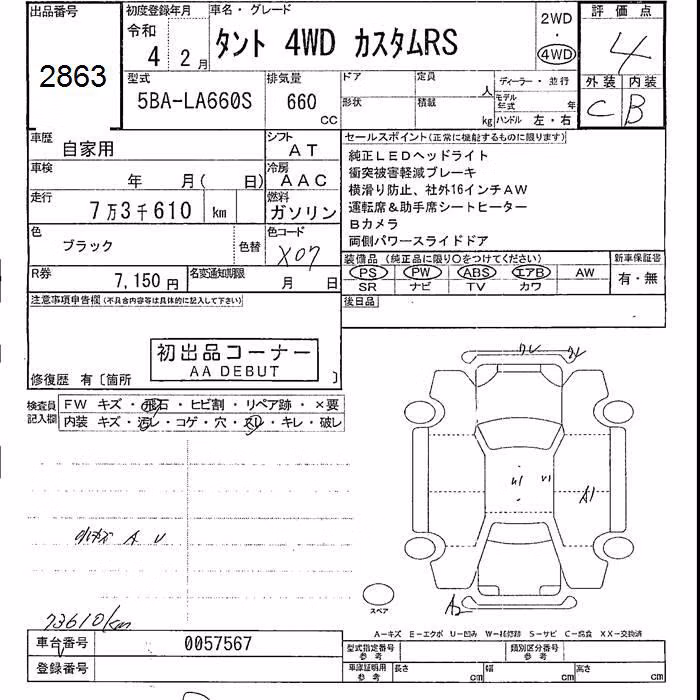 出品番号
2863
初度登録年月
令和
4 2月
車名・グレード
タント 4WD カスタムRS
2WD
・
4WD
評価点
4
外装 内装
C B
型式
5BA-LA660S
排気量
660
CC
ドア
形状
定員
人
積載
kg
ディーラー・並行
モデル年式 年
ハンドル 左・右
車歴
自家用
シフト
AT
車検
年 月( 日)
冷房
AAC
走行
7万3千610 km
燃料
ガソリン
色
ブラック
色替
色コード
X07
R券
7,150円
名変通知期限
月 日
セールスポイント(正常に機能するものに限ります)
純正LEDヘッドライト
衝突被害軽減ブレーキ
横滑り防止、社外16インチAW
運転席&助手席シートヒーター
Bカメラ
両側パワースライドドア
装備品(純正品に限り○をつけてください)
PS PW ABS エアB AW
SR ナビ TV カワ
新車保証書
有・無
後日品
注意事項申告欄(不具合内容等は具体的に記入して下さい)
初出品コーナー
AA DEBUT
修復歴 有〔箇所 〕
検査員記入欄
FW キズ・飛石・ヒビ割・リペア跡・×要
内装 キズ・汚レ・コゲ・穴・スレ・キレ・破レ
小キズ A U
73610km
A1
U1
スペア
A-キズ E-エクボ U-凹み W-補修跡 S-サビ C-腐食 XX-交換済
車台番号
0057567
登録番号
型式指定番号
参考
類別区分番号
参考
車庫証明用
参考
長さ cm
幅 cm
高さ cm